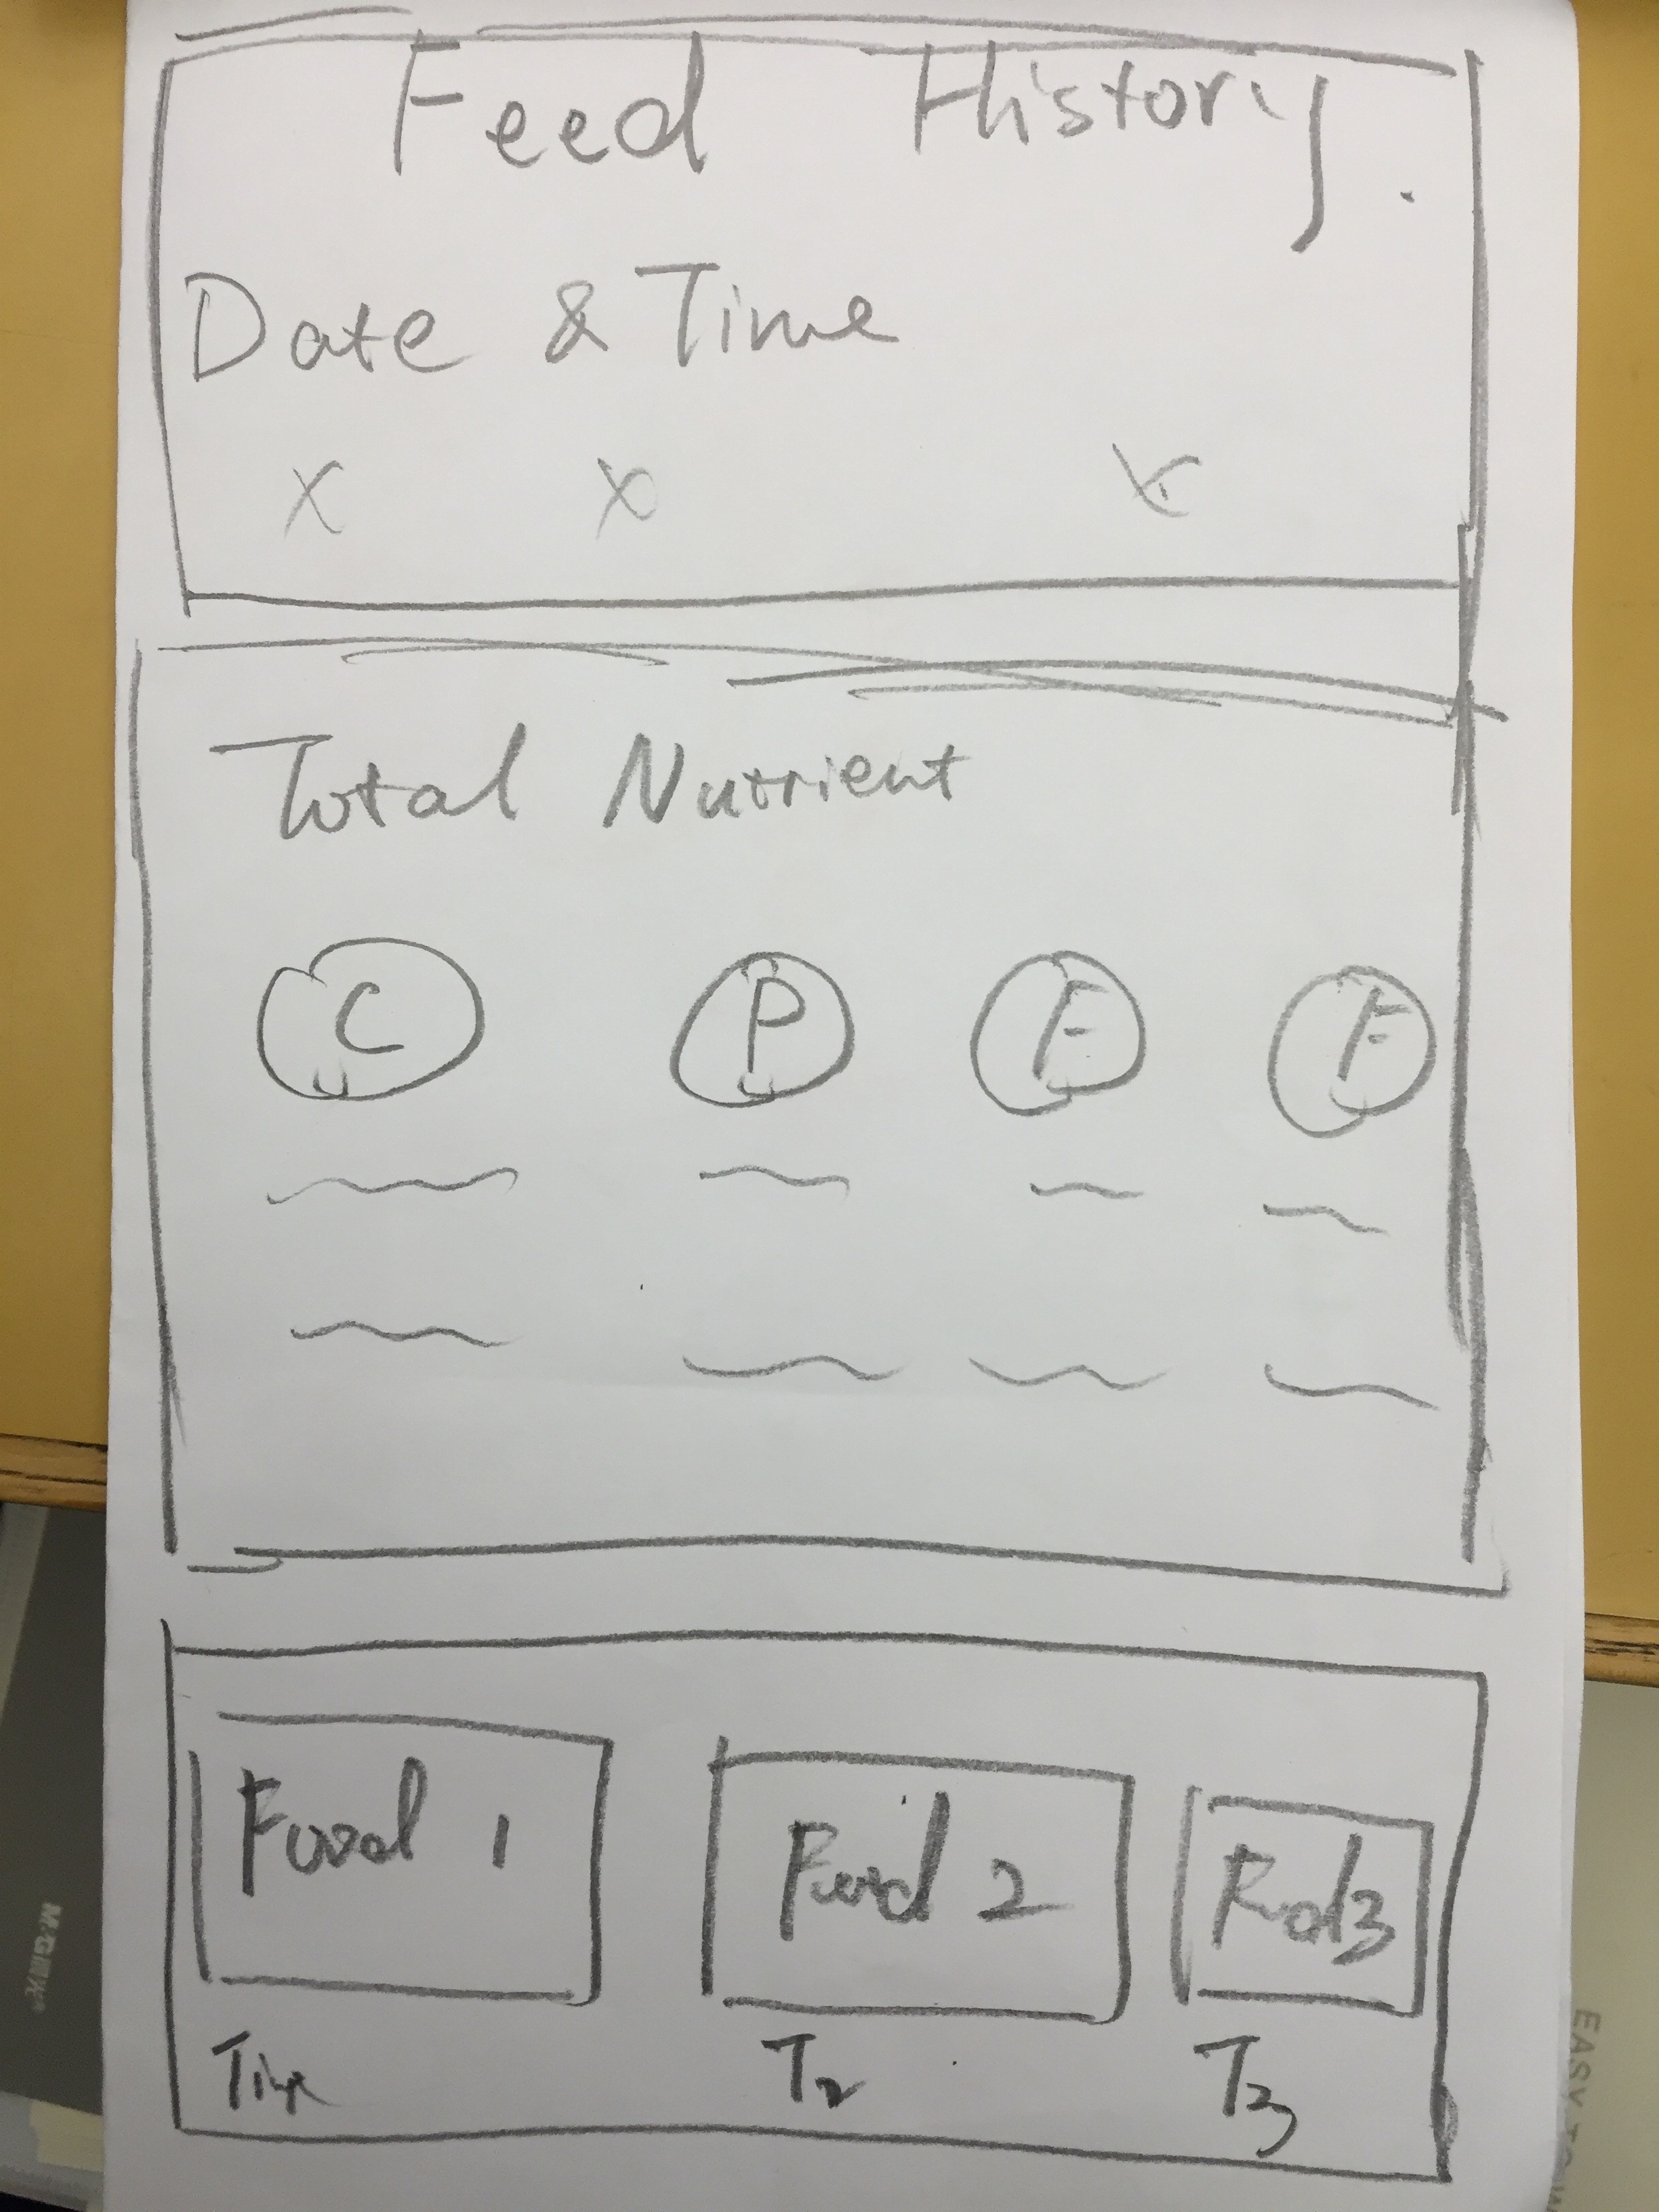 Feed History.
Date & Time
X X X
Total Nutrient
C P F F
Food 1 Food 2 Food3
Time T2 T3
M&G晨光
EASY TO